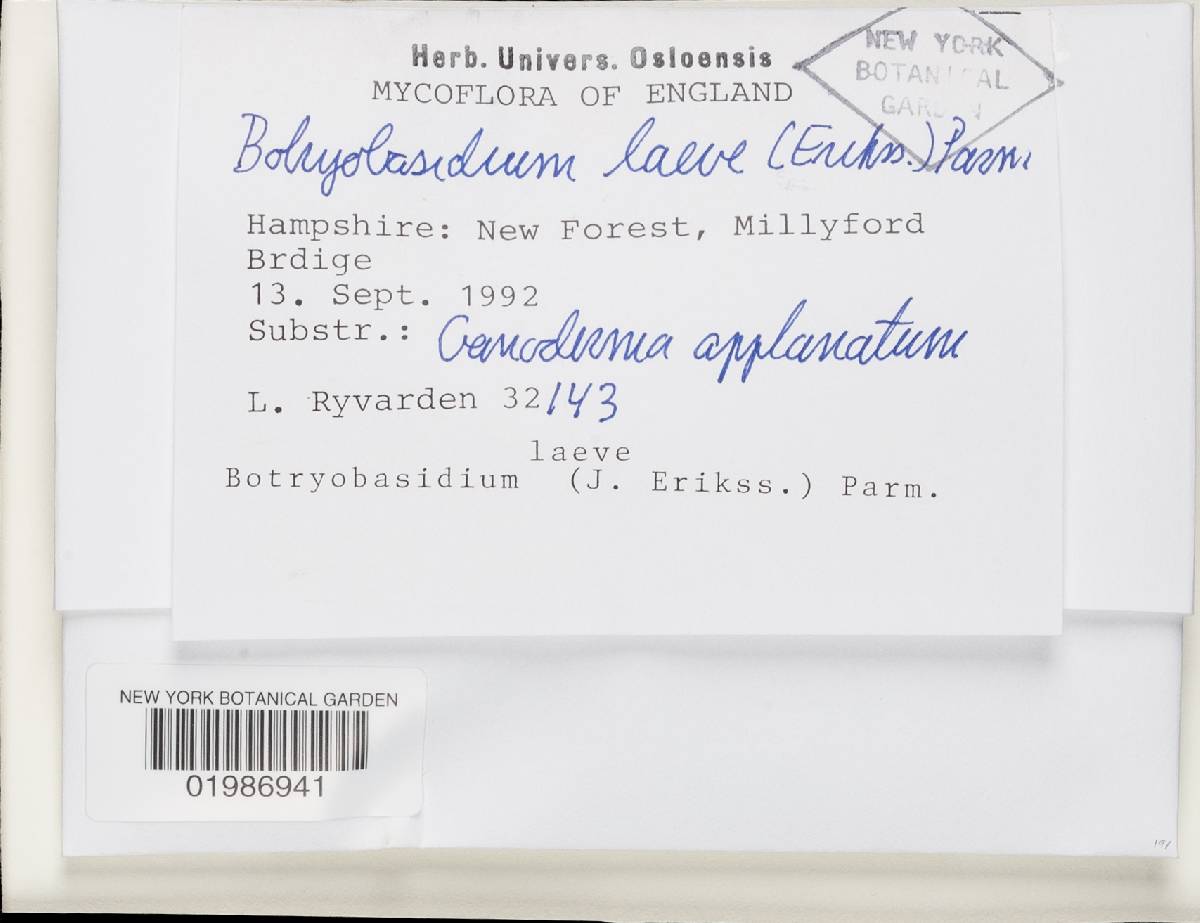 Herb. Univers. Osloensis
MYCOFLORA OF ENGLAND
NEW YORK
BOTANICAL
GARDEN
Botryobasidium laeve (Erikss.) Parm
Hampshire: New Forest, Millyford
Brdige
13. Sept. 1992
Substr.: Ganoderma applanatum
L. Ryvarden 32143
laeve
Botryobasidium (J. Erikss.) Parm.
NEW YORK BOTANICAL GARDEN
01986941